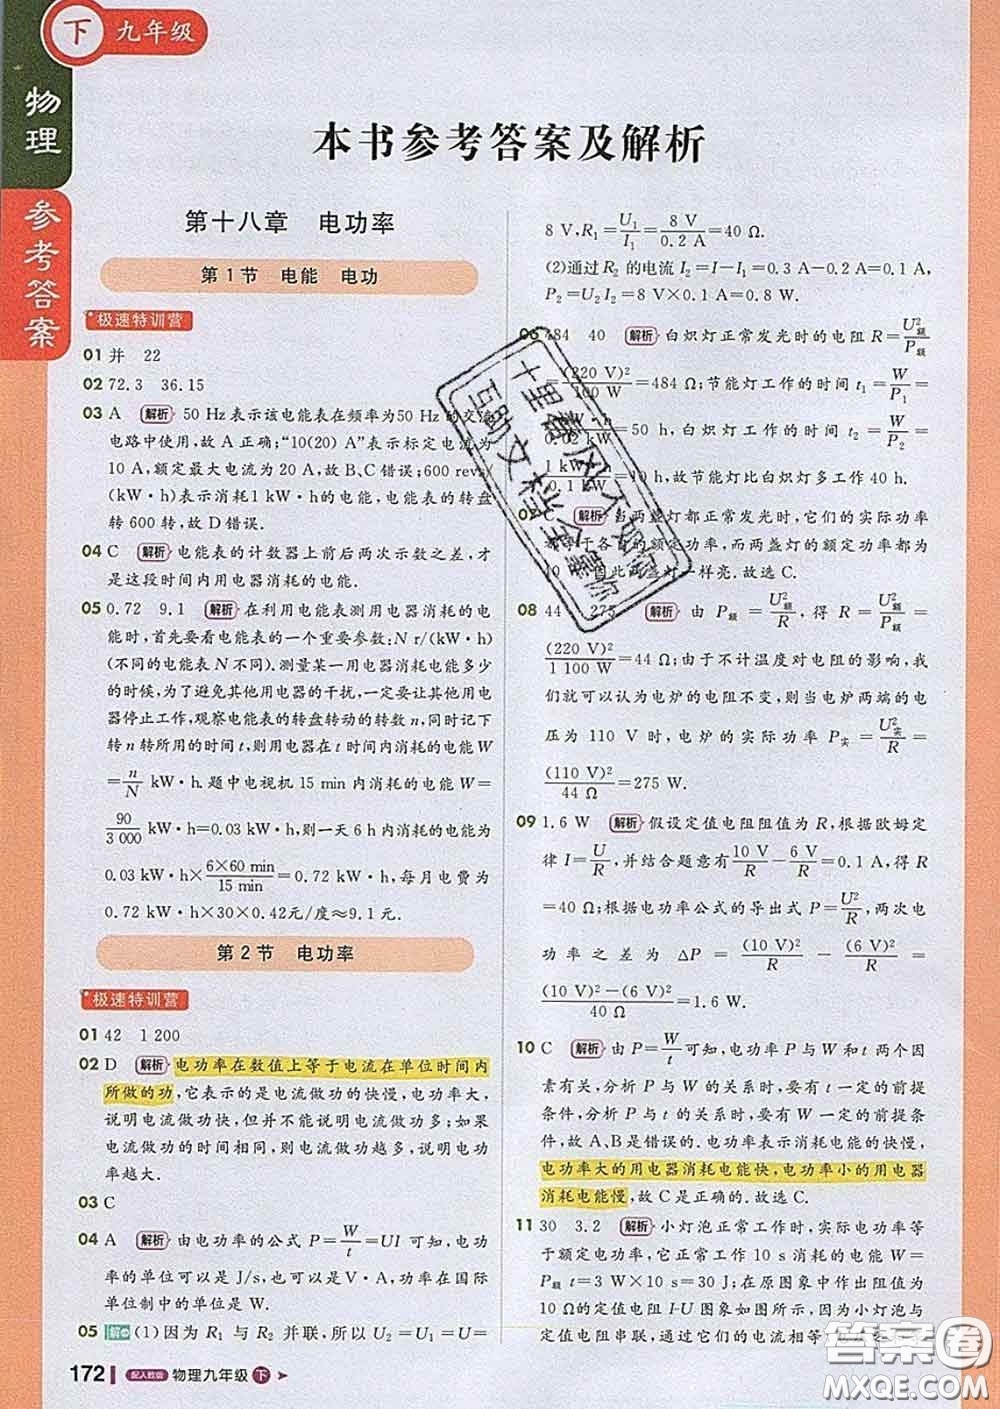 下 九年级
物理
参考答案
本书参考答案及解析
第十八章 电功率
第1节 电能 电功
极速特训营
01 并 22
02 72.3 36.15
03 A 解析 50 Hz表示该电能表在频率为50 Hz的交流
电路中使用,故A正确;“10(20) A”表示标定电流为
10 A,额定最大电流为20 A,故B、C错误;600 revs/
(kW·h)表示消耗1 kW·h的电能,电能表的转盘
转600转,故D错误.
04 C 解析 电能表的计数器上前后两次示数之差,才
是这段时间内用电器消耗的电能.
05 0.72 9.1 解析 在利用电能表测用电器消耗的电
能时,首先要看电能表的一个重要参数:N r/(kW·h)
(不同的电能表N不同).测量某一用电器消耗电能多少
的时候,为了避免其他用电器的干扰,一定要让其他用电
器停止工作,观察电能表的转盘转动的转数n,同时记下
转n转所用的时间t,则用电器在t时间内消耗的电能W
=n/N kW·h.题中电视机15 min内消耗的电能W=
90/3 000 kW·h=0.03 kW·h,则一天6 h内消耗的电能为
0.03 kW·h×(6×60 min)/(15 min)=0.72 kW·h,每月电费为
0.72 kW·h×30×0.42元/度≈9.1元.
第2节 电功率
极速特训营
01 42 1 200
02 D 解析 电功率在数值上等于电流在单位时间内
所做的功,它表示的是电流做功的快慢,电功率大,
说明电流做功快,但并不能说明电流做功多;如果
电流做功的时间相同,则电流做功越多,说明电功
率越大.
03 C
04 A 解析 由电功率的公式P=W/t=UI可知,电功
率的单位可以是J/s,也可以是V·A,功率在国际
单位制中的单位是W.
05 解 (1)因为R₁与R₂并联,所以U₂=U₁=U=
172 配人教版 物理九年级 下
8 V,R₁=U₁/I₁=8 V/0.2 A=40 Ω.
(2)通过R₂的电流I₂=I−I₁=0.3 A−0.2 A=0.1 A,
P₂=U₂I₂=8 V×0.1 A=0.8 W.
06 484 40 解析 白炽灯正常发光时的电阻R=U²额/P额
=(220 V)²/100 W=484 Ω;节能灯工作的时间t₁=W/P₁=
/0.02 kW=50 h,白炽灯工作的时间t₂=W/P₂=
1 kW·h/0.1 kW=10 h,故节能灯比白炽灯多工作40 h.
07 C 解析 当两盏灯都正常发光时,它们的实际功率
都等于各自的额定功率,而两盏灯的额定功率都为
10 因此两盏灯一样亮.故选C.
08 44 275 解析 由P额=U²额/R,得R=U²额/P额=
(220 V)²/1 100 W=44 Ω;由于不计温度对电阻的影响,我
们就可以认为电炉的电阻不变,则当电炉两端的电
压为110 V时,电炉的实际功率P实=U²实/R=
(110 V)²/44 Ω=275 W.
09 1.6 W 解析 假设定值电阻阻值为R,根据欧姆定
律I=U/R,并结合题意有10 V/R−6 V/R=0.1 A,得R
=40 Ω;根据电功率公式的导出式P=U²/R,两次电
功率之差ΔP=(10 V)²/R−(6 V)²/R=
((10 V)²−(6 V)²)/40 Ω=1.6 W.
10 C 解析 由P=W/t可知,电功率P与W和t两个因
素有关,分析P与W的关系时,要有t一定的前提
条件,分析P与t的关系时,要有W一定的前提条
件,故A、B是错误的.电功率表示消耗电能的快慢,
电功率大的用电器消耗电能快,电功率小的用电器
消耗电能慢,故C是正确的.故选C.
11 30 3.2 解析 小灯泡正常工作时,实际电功率等
于额定电功率,它正常工作10 s消耗的电能W=
P额t=3 W×10 s=30 J;在原图象中作出阻值为
10 Ω的定值电阻I-U图象如图所示,因为小灯泡与
定值电阻串联,通过它们的电流相
十里春风不如你
互助文档全靠你
答案圈
MXQE.COM